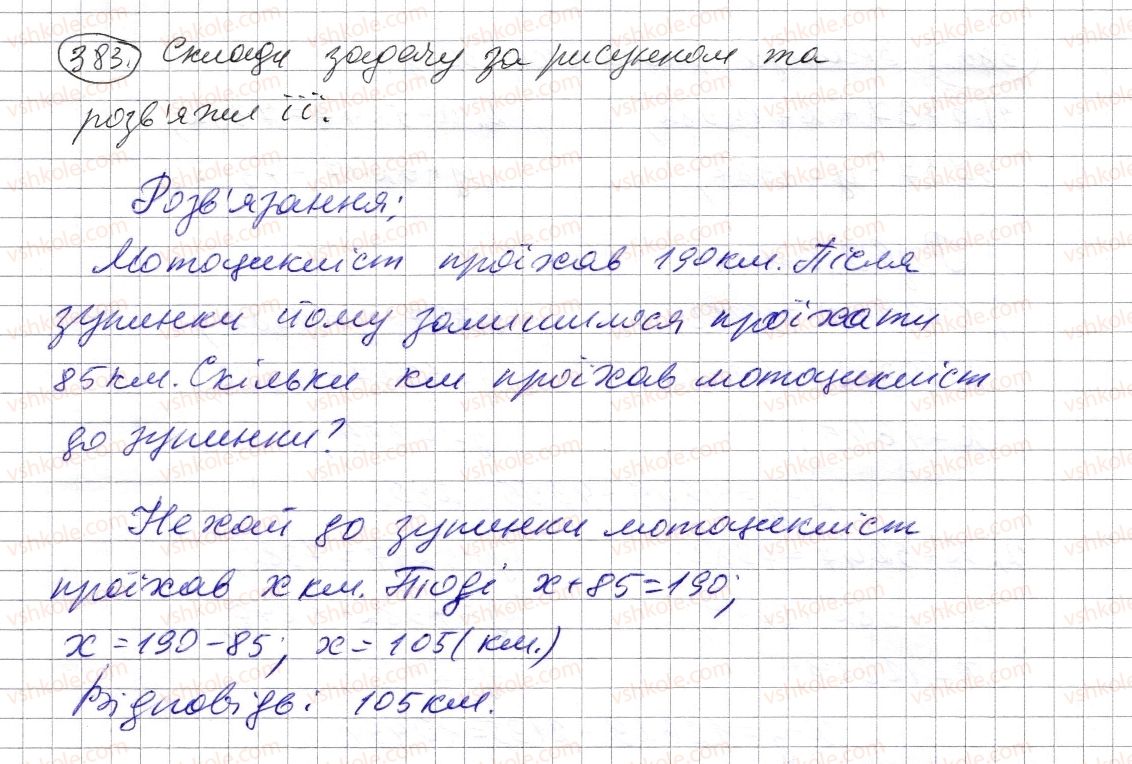 383. Склади задачу за рисунком та
розв'яжи її.
Розв'язання;
Мотоцикліст проїхав 190 км. Після
зупинки йому залишилося проїхати
85 км. Скільки км проїхав мотоцикліст
до зупинки?
Нехай до зупинки мотоцикліст
проїхав x км. Тоді x+85=190;
x=190-85; x=105(км.)
Відповідь: 105 км.